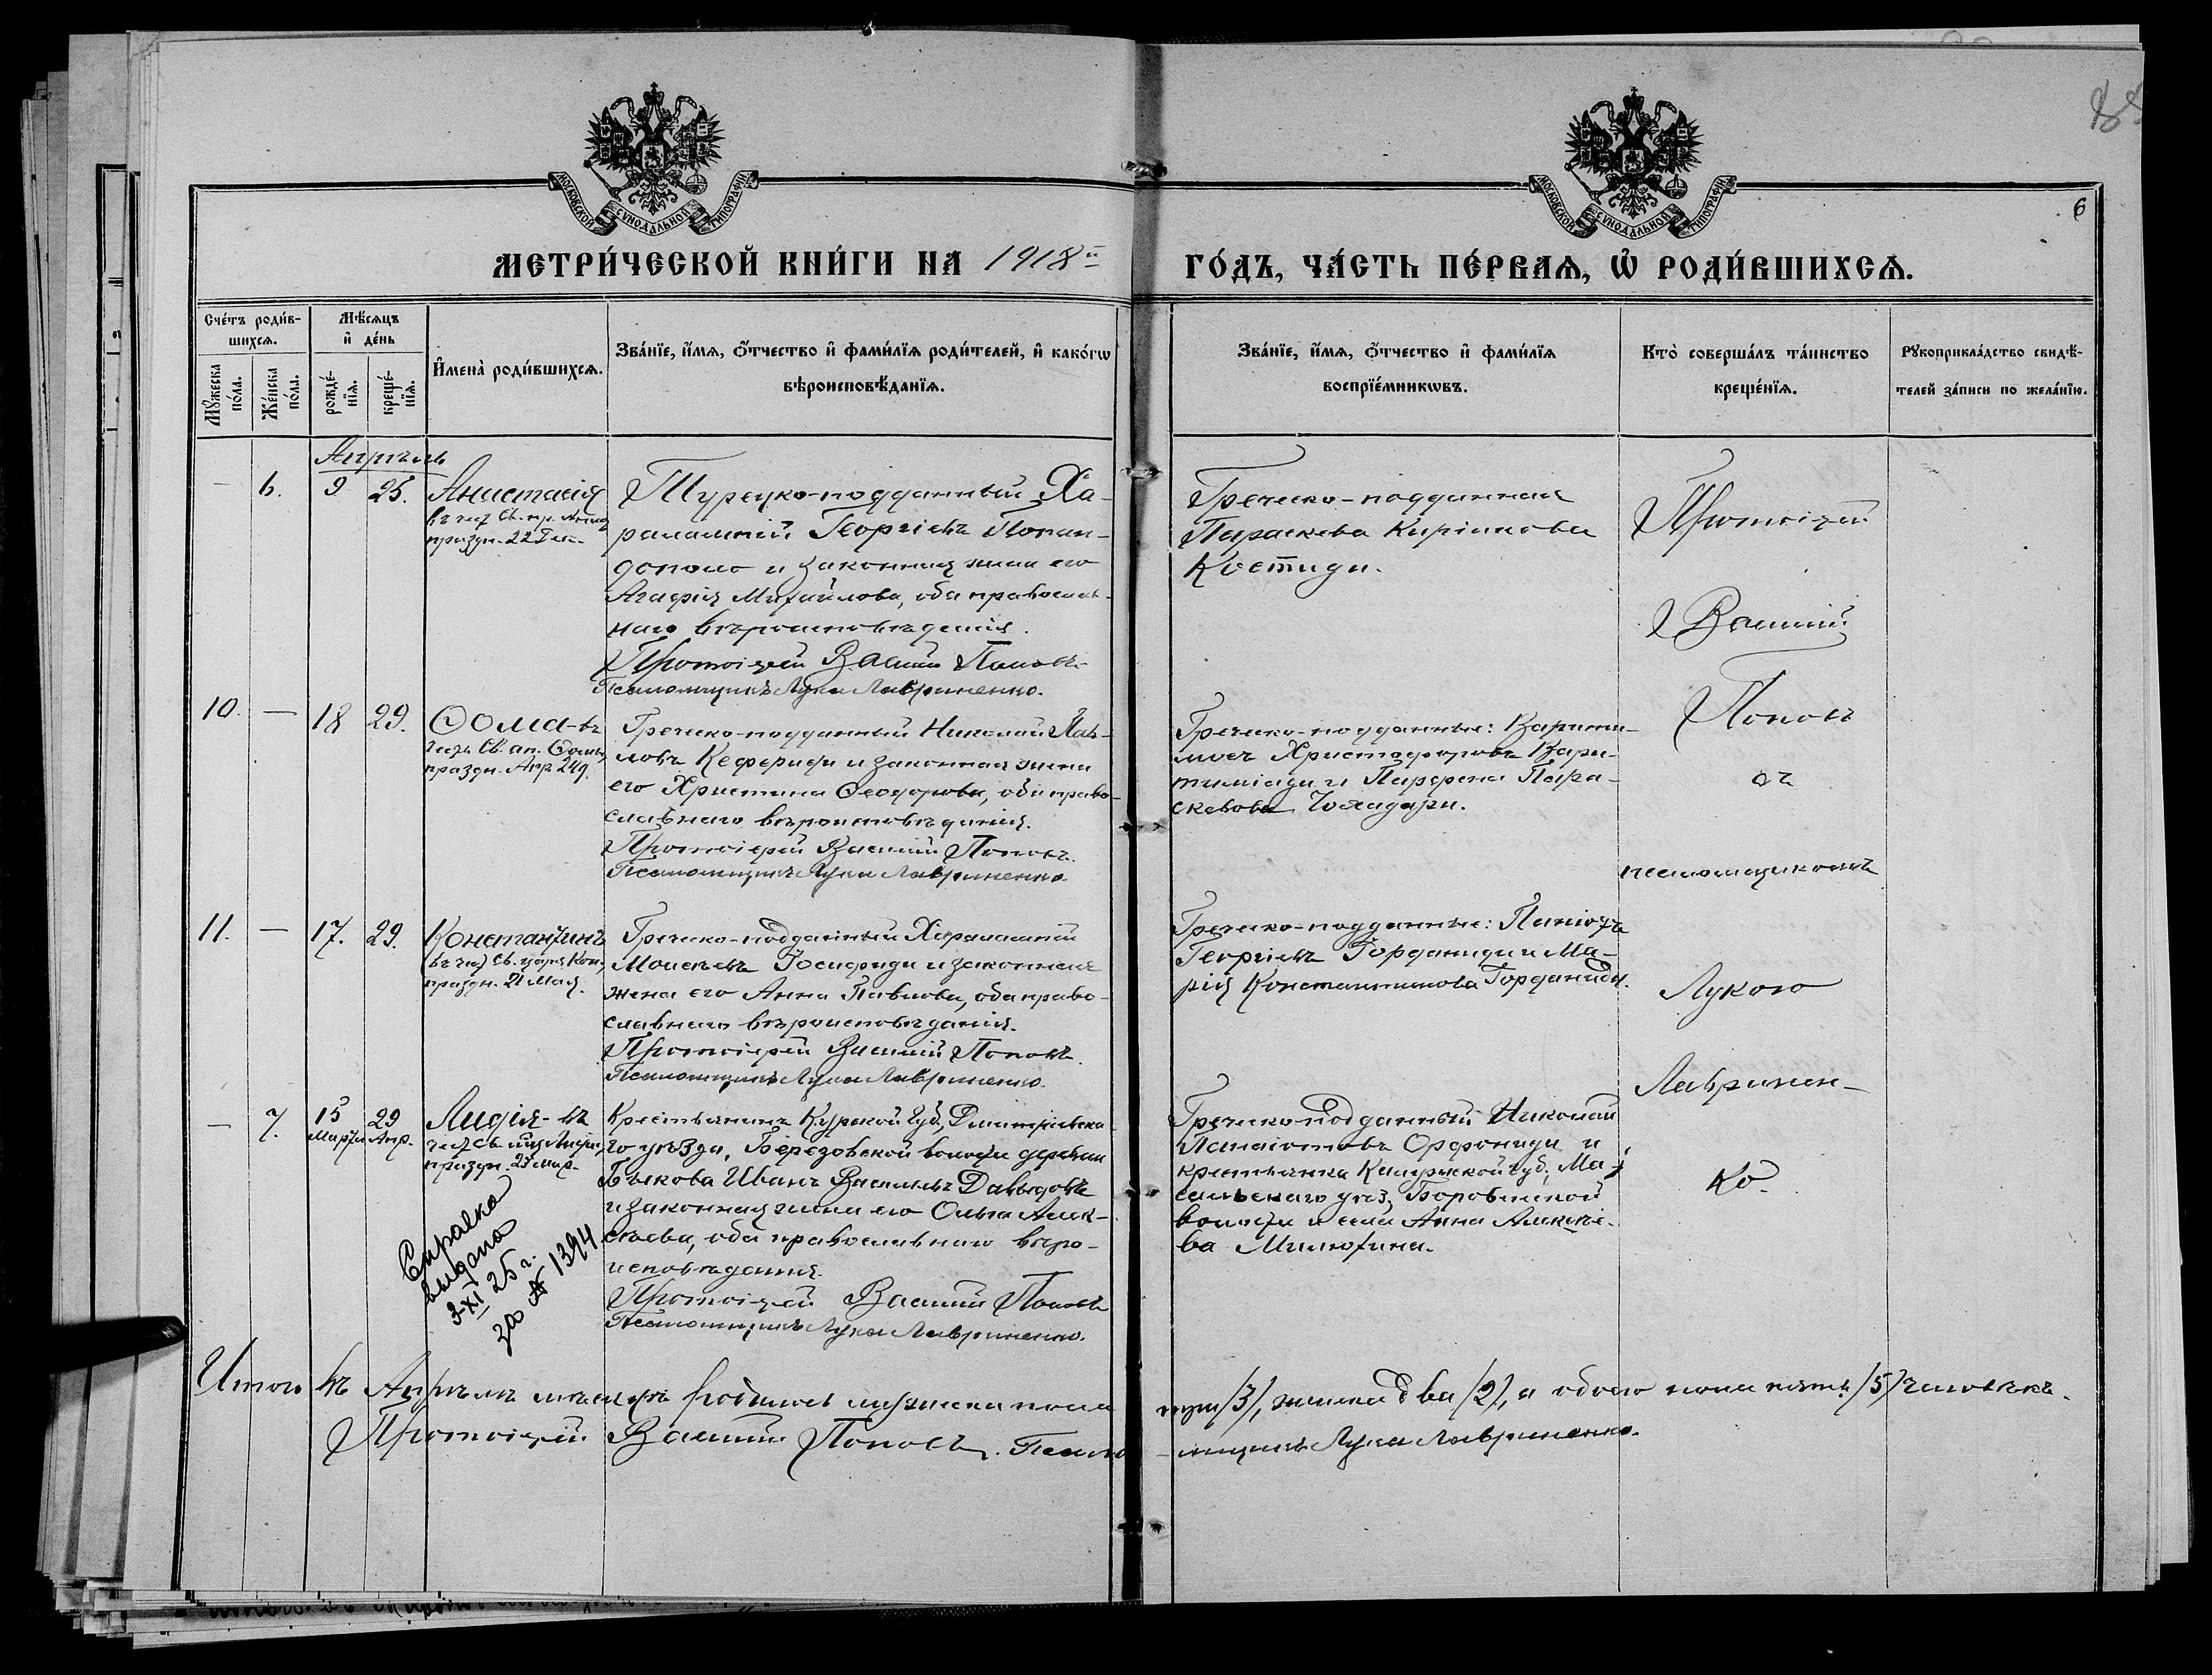 МОСКОВСКОЙ СУНОДАЛЬНОЙ ТИПОГРАФІИ
МОСКОВСКОЙ СУНОДАЛЬНОЙ ТИПОГРАФІИ
6
МЕТРИ́ЧЕСКОЙ КНИ́ГИ НА 1918й
ГО́ДЪ, ЧА́СТЬ ПЕ́РВАЯ, Ѽ РОДИ́ВШИХСЯ.
Сче́тъ роди́в-
шихся.
Мꙋжеска по́ла.
Же́нска по́ла.
Мѣ́сяцъ
и҆ де́нь
рожде́-
нїя.
креще́-
нїя.
И҆мена̀ роди́вшихся.
Зва́нїе, и҆́мя, ѻ҆́тчество и҆ фами́лїя роди́телей, и҆ како́гѡ
вѣроисповѣ́данїя.
Зва́нїе, и҆́мя, ѻ҆́тчество и҆ фами́лїя
воспрїе́мникѡвъ.
Кто̀ соверша́лъ та́инство
креще́нїя.
Рꙋкоприкла́дство свидѣ́-
телей за́писи по жела́нїю.
Апрѣль
— 6. 9 25. Анастасія
праздн. 22 Дек.
Турецко-подданный Ха-
ралампій Георгіевъ Попан-
дополо и законная жена его
Агафія Михайлова, оба православ-
наго вѣроисповѣданія.
Протоіерей Василій Поповъ.
Псаломщикъ Лука Лавриненко.
Греческо-подданная
Параскева Киріакова
Костиди.
Протоіерей
Василій
Поповъ
съ
псаломщикомъ
Лукою
Лавринен-
ко.
10. — 18 29. Ѳома-въ
честь Св. ап. Ѳомы,
праздн. Апр.
Греческо-подданный Николай Пав-
ловъ Кефериди и законная жена
его Христина Ѳеодорова, оба право-
славнаго вѣроисповѣданія.
Протоіерей Василій Поповъ.
Псаломщикъ Лука Лавриненко
Греческо-подданные:
Христофоровъ
и Парфена Пара-
скевова
11. — 17. 29. Константинъ
(въ чес) Св. царя Кон.,
праздн. 21 Мая.
Греческо-подданный Харалампій
Моисеевъ Іосифиди и законная
жена его Анна Павлова, оба право-
славнаго вѣроисповѣданія.
Протоіерей Василій Поповъ.
Псаломщикъ Лука Лавриненко
Греческо-подданные: Панаіотъ
Георгіевъ Іорданиди и Ма-
рія Константинова Іорданиди.
— 7. 15 29 Лидія-въ
Марта Апр.
праздн. 23 Мар.
Крестьянинъ Курской губ., Дмитріевска-
го уѣзда, Березовской волости деревни
Быкова Иванъ Васильевъ Давыдовъ
и законная жена его Ольга Алек-
сѣева, оба православнаго вѣро-
исповѣданія.
Протоіерей Василій Поповъ
Псаломщикъ Лука Лавриненко.
Греческо-подданный Николай
Панаіотовъ Орфониди и
крестьянка Калужской губ., Ма-
сальскаго уѣз., Боровенской
волости и села Анна Алексѣе-
ва Милютина.
Справка
выдана
3-XI 25 г.
за № 1394
Итого въ Апрѣлѣ мѣсяцѣ родилось мужеска пола
три /3/, женска два /2/, а обоего пола пять /5/ человѣкъ.
Протоіерей Василій Поповъ. Псало-
мщикъ Лука Лавриненко.